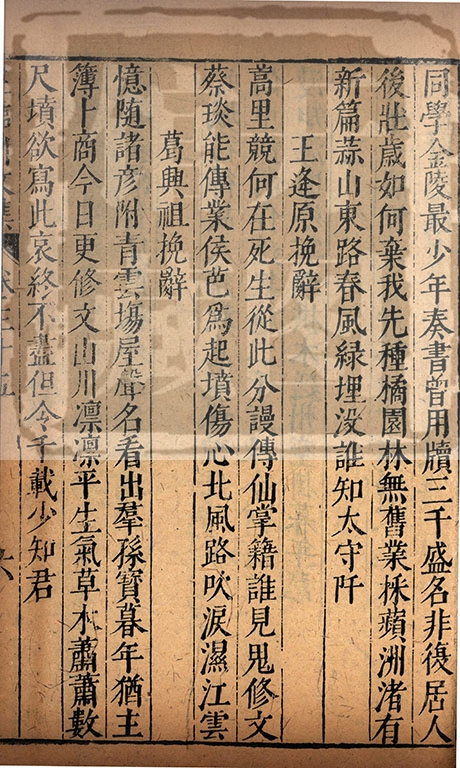 同學金陵最少年奏書曾用牘三千盛名非復居人
後壯歲如何棄我先種橘園林無舊業採蘋洲渚有
新篇蒜山東路春風緑埋没誰知太守阡
王逢原挽辭
蒿里競何在死生從此分謾傳仙掌籍誰見鬼修文
蔡琰能傳業侯芭爲起墳傷心北風路吹淚濕江雲
葛興祖挽辭
憶隨諸彦附青雲塲屋聲名看出羣孫寶暮年猶主
簿卜商今日更修文山川凛凛平生氣草木蕭蕭數
尺墳欲寫此哀終不盡但令千載少知君